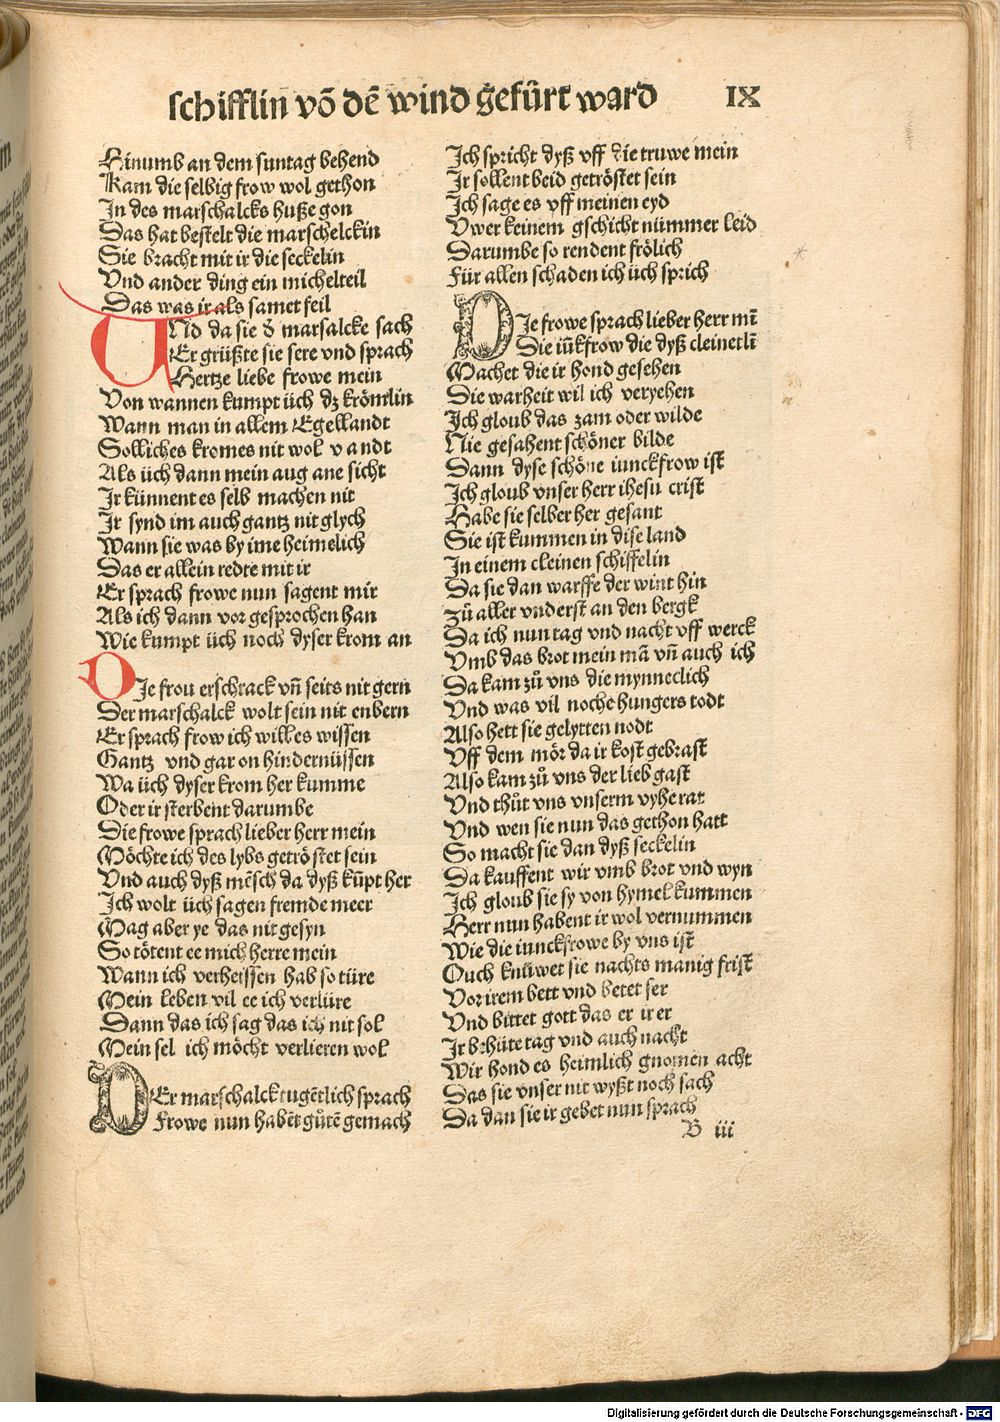 schifflin võ dẽ wind gefůrt ward IX
Hinumb an dem suntag behend
Kam die selbig frow wol gethon
In des marschalcks huße gon
Das hat bestelt die marschelckin
Sie bracht mit ir die seckelin
Vnd ander ding ein michelteil
Das was ir als samet feil
UNd da sie d̕ marsalcke sach
Er grüßte sie sere vnd sprach
Hertze liebe frowe mein
Von wannen kumpt üch dz krömlin
Wann man in allem Egellandt
Solliches kromes nit wol vandt
Als üch dann mein aug ane sicht
Ir künnent es selb machen nit
Ir synd im auch gantz nit glych
Wann sie was by ime heimelich
Das er allein redte mit ir
Er sprach frowe nun sagent mir
Als ich dann vor gesprochen han
Wie kumpt üch noch dyser krom an
DIe frou erschrack vñ seits nit gern
Der marschalck wolt sein nit enbern
Er sprach frow ich will es wissen
Gantz vnd gar on hindernüssen
Wa üch dyser krom her kumme
Oder ir sterbent darumbe
Die frowe sprach lieber herr mein
Möchte ich des lybs getröstet sein
Vnd auch dyß mẽsch da dyß kũpt her
Ich wolt üch sagen fremde meer
Mag aber ye das nit gesyn
So tötent ee mich herre mein
Wann ich verheissen hab so türe
Mein leben vil ee ich verlüre
Dann das ich sag das ich nit sol
Mein sel ich möcht verlieren wol
DEr marschalck tugẽtlich sprach
Frowe nun habẽt gůtẽ gemach
Ich spricht dyß vff die truwe mein
Ir sollent beid getröstet sein
Ich sage es vff meinen eyd
Vwer keinem gschicht nümmer leid
Darumbe so rendent frölich
Für allen schaden ich üch sprich
DIe frowe sprach lieber herr mĩ
Die iũkfrow die dyß cleinetlĩ
Machet die ir hond gesehen
Die warheit wil ich veryehen
Ich gloub das zam oder wilde
Nie gesahent schöner bilde
Dann dyse schöne iunckfrow ist
Ich gloub vnser herr ihesu crist
Habe sie selber her gesant
Sie ist kummen in dise land
In einem cleinen schiffelin
Da sie dan warffe der wint hin
Zů aller vnderst an den bergk
Da ich nun tag vnd nacht vff werck
Vmb das brot mein mã vñ auch ich
Da kam zů vns die mynneclich
Vnd was vil noche hungers todt
Also hett sie gelytten nodt
Vff dem mör da ir kost gebrast
Also kam zů vns der lieb gast
Vnd thůt vns vnserm vyhe rat
Vnd wen sie nun das gethon hatt
So macht sie dan dyß seckelin
Da kauffent wir vmb brot vnd wyn
Ich gloub sie sy von hymel kummen
Herr nun habent ir wol vernummen
Wie die iunckfrowe by vns ist
Ouch knüwet sie nachts manig frist
Vor irem bett vnd betet ser
Vnd bittet gott das er ir er
Ir behüte tag vnd auch nacht
Wir hond es heimlich gnomen acht
Das sie vnser nit wyßt noch sach
Da dan sie ir gebet nun sprach
B iii
Digitalisierung gefördert durch die Deutsche Forschungsgemeinschaft - DFG